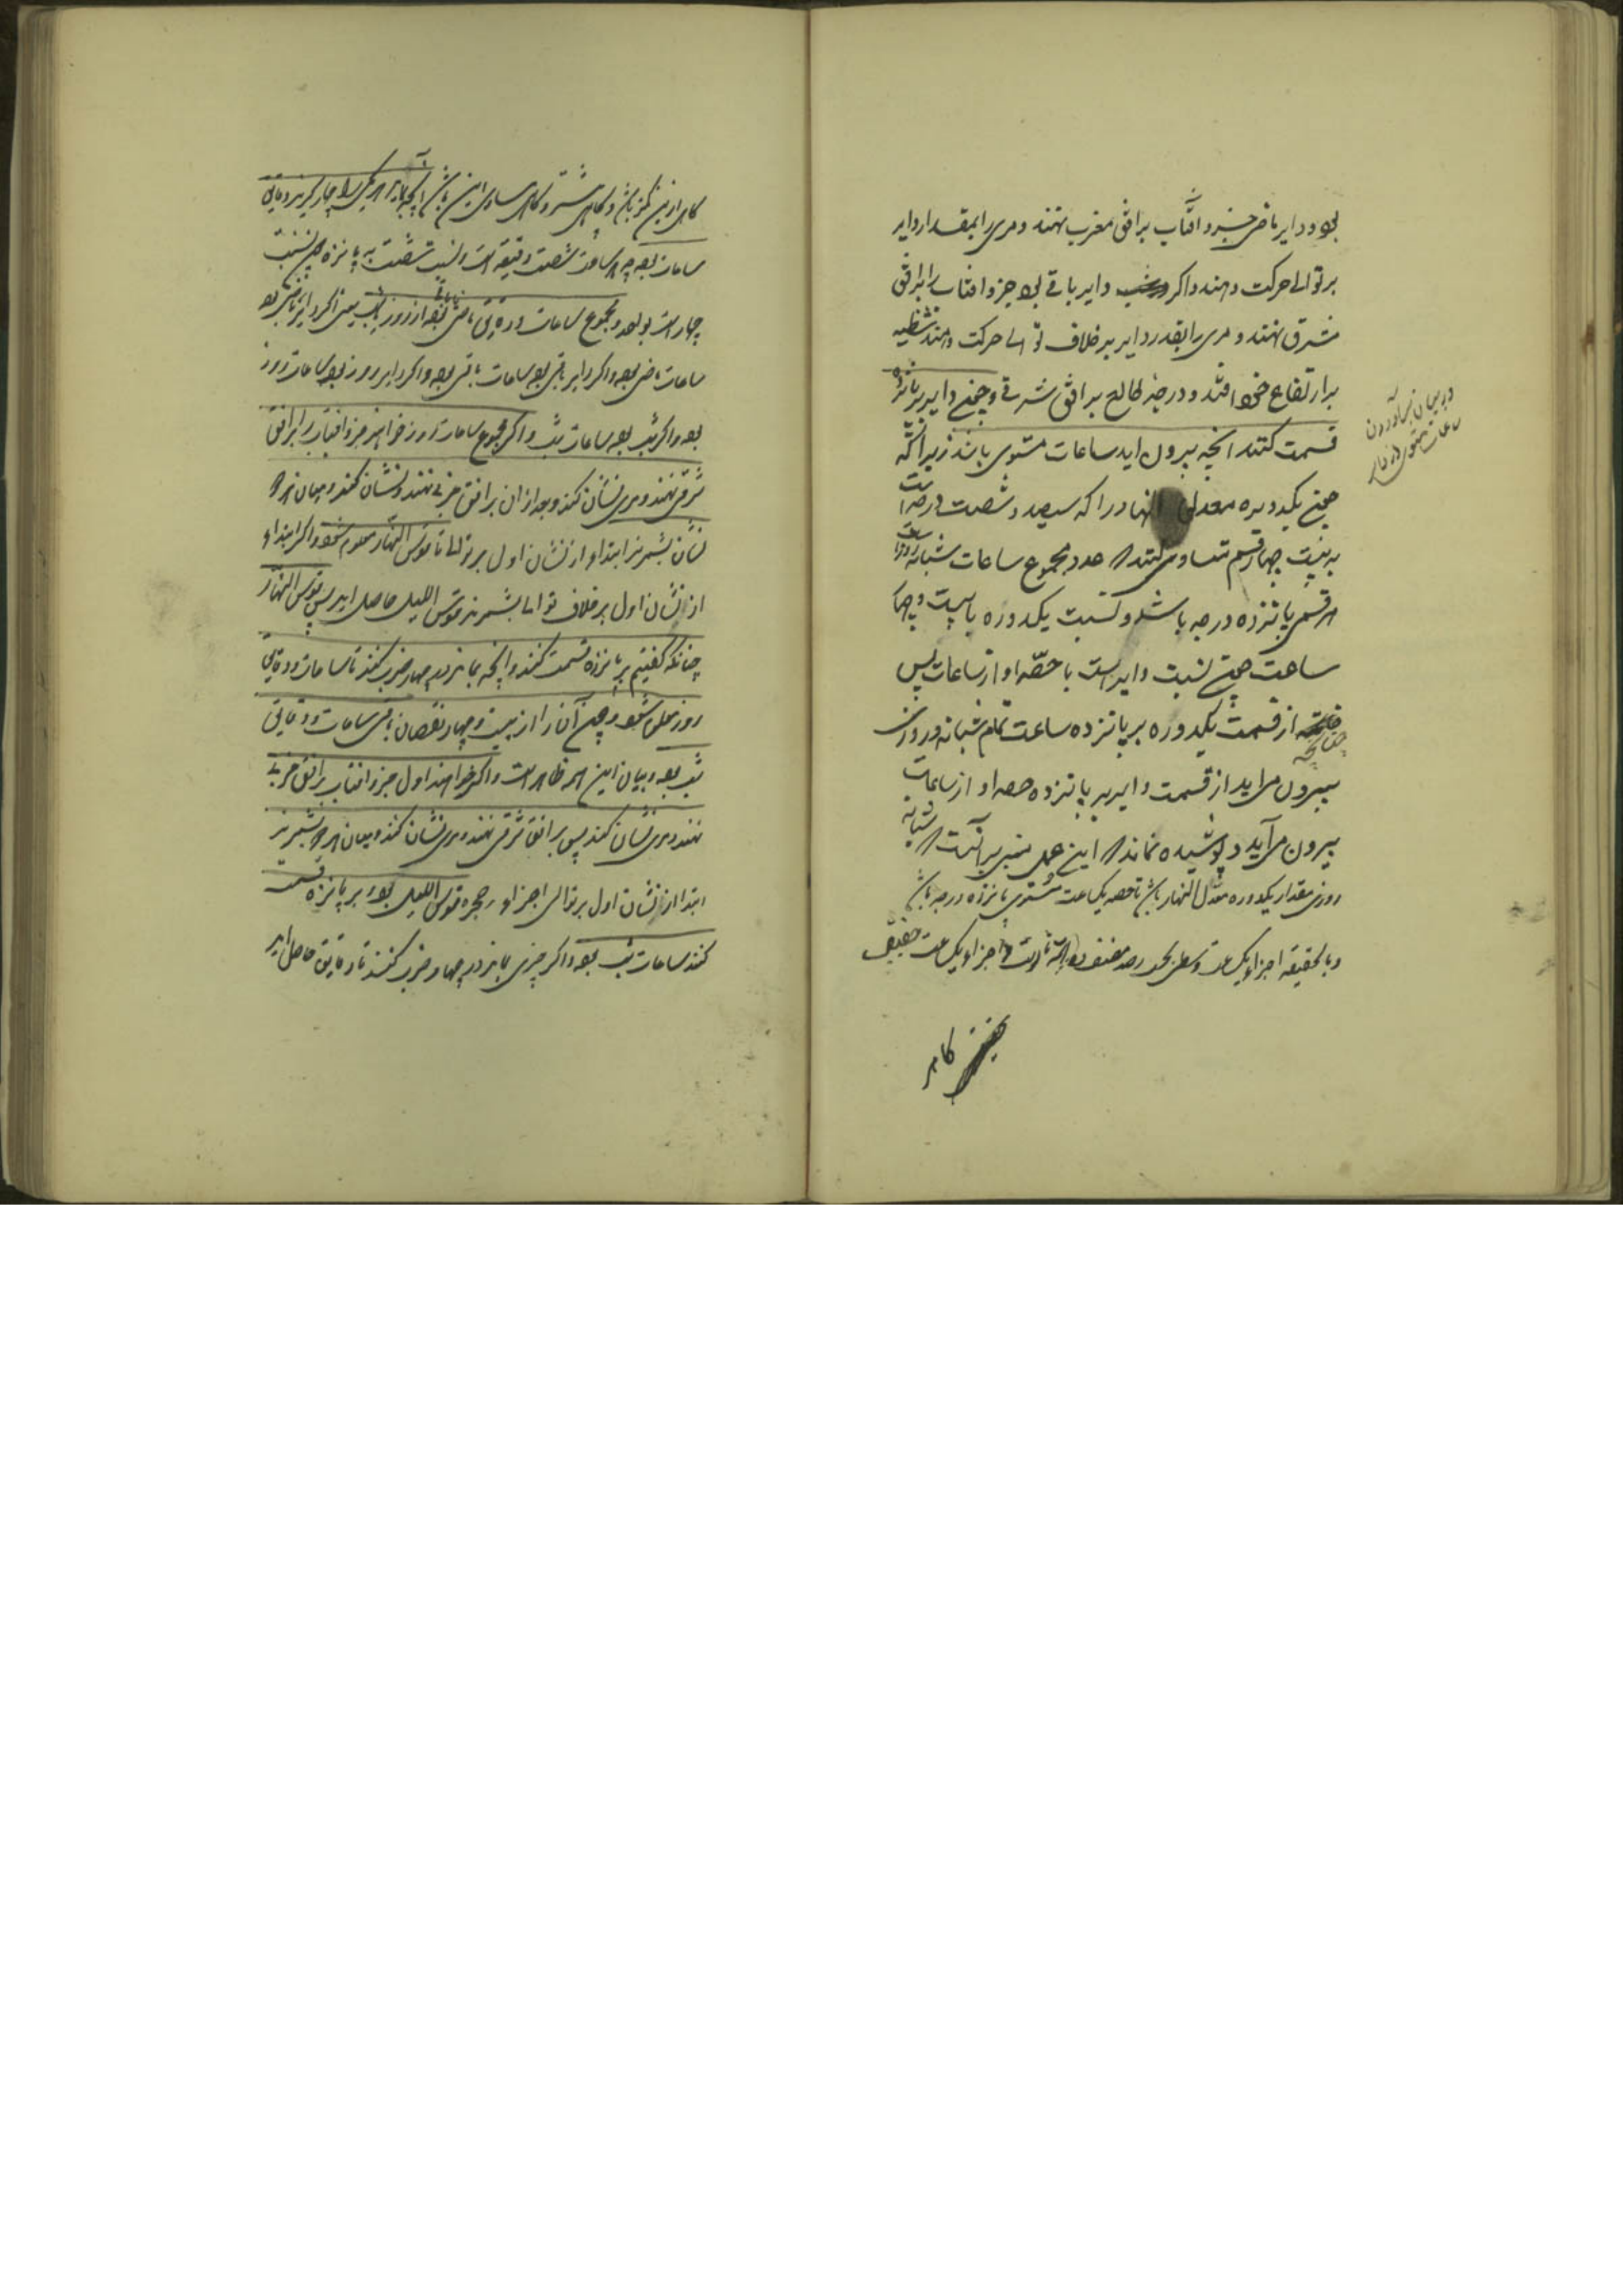 بود و دایر ماضی جزو آفتاب بر افق مغرب نهند و مری را بمقدار دایر
بر توالی حرکت دهند و اگر دایر باقی بود جزو افتاب را بر افق
مشرق نهند و مری را بقدر دایر بر خلاف توالی حرکت دهند شظیه
بر ارتفاع خود افتد و درجهٔ طالع بر افق شرقی و چون دایر بر پانزده
قسمت کنند انچه بیرون اید ساعات مستوی باشد زیرا که
چون یکدوره معدل النهار را که سیصد و شصت درجه است
به بیست چهار قسم متساوی کنند عدد مجموع ساعات شبانه روز است
هر قسمی پانزده درجه باشد و نسبت یکدوره با بیست و چهار
ساعت چون نسبت دایر است با حصّه او از ساعات پس
چنانچه از قسمت یکدوره بر پانزده ساعت تمام شبانه روز
بیرون می اید از قسمت دایر بر پانزده حصه او از ساعات
بیرون می آید و پوشیده نماند که این عمل مبنی بر آنست که شبانه
روزی مقدار یکدوره معدل النهار باشد تا حصه یکساعت مستوی پانزده درجه باشد
و بالحقیقه اجزاء یکساعت وسطی بحسب رصد مصنف اجزاء یکساعت حقیقی
کاهی
در بیان آوردن ساعات مستوی از دایر
کاهی ازین کمتر باشد و کاهی بیشتر و کاهی مساوی این باشد انچه بماند هر یکی را چهار کیرند دقایق
ساعات بود چه هر ساعت شصت دقیقه است و نسبت شصت به پانزده چون نسبت
چهار است بواحد و مجموع ساعات و دقایق ماضی بود از روز یا شب یعنی اگر دایر ماضی بود
ساعات ماضی بود و اگر دایر باقی بود ساعات باقی بود و اگر دایر روز بود ساعات روز
بود و اگر شب بود ساعات شب و اگر مجموع ساعات روز خواهند جزو افتاب را بر افق
شرقی نهند و مری نشان کنند و بعد از ان بر افق غربی نهند و نشان کنند و میان هر دو
نشان بشمرند ابتداء از نشان اول بر توالی تا قوس النهار معلوم شود و اگر ابتداء
از نشان اول بر خلاف توالی بشمرند قوس اللیل حاصل اید پس قوس النهار
چنانکه کفتیم بر پانزده قسمت کنند و انچه بماند در چهار ضرب کنند تا ساعات و دقایق
روز معلوم شود و چون آن را از بیست و چهار نقصان باقی ساعات و دقایق
شب بود و بیان این امر ظاهر است و اگر خواهند اول جزو افتاب بر افق غربی
نهند و مری نشان کنند پس بر افق شرقی نهند و مری نشان کنند و میان هر دو بشمرند
ابتدا از نشان اول بر توالی اجزاء حجره قوس اللیل بود بر پانزده قسمت
کنند ساعات شب بود و اگر چیزی بماند در چهار ضرب کنند تا دقایق حاصل اید